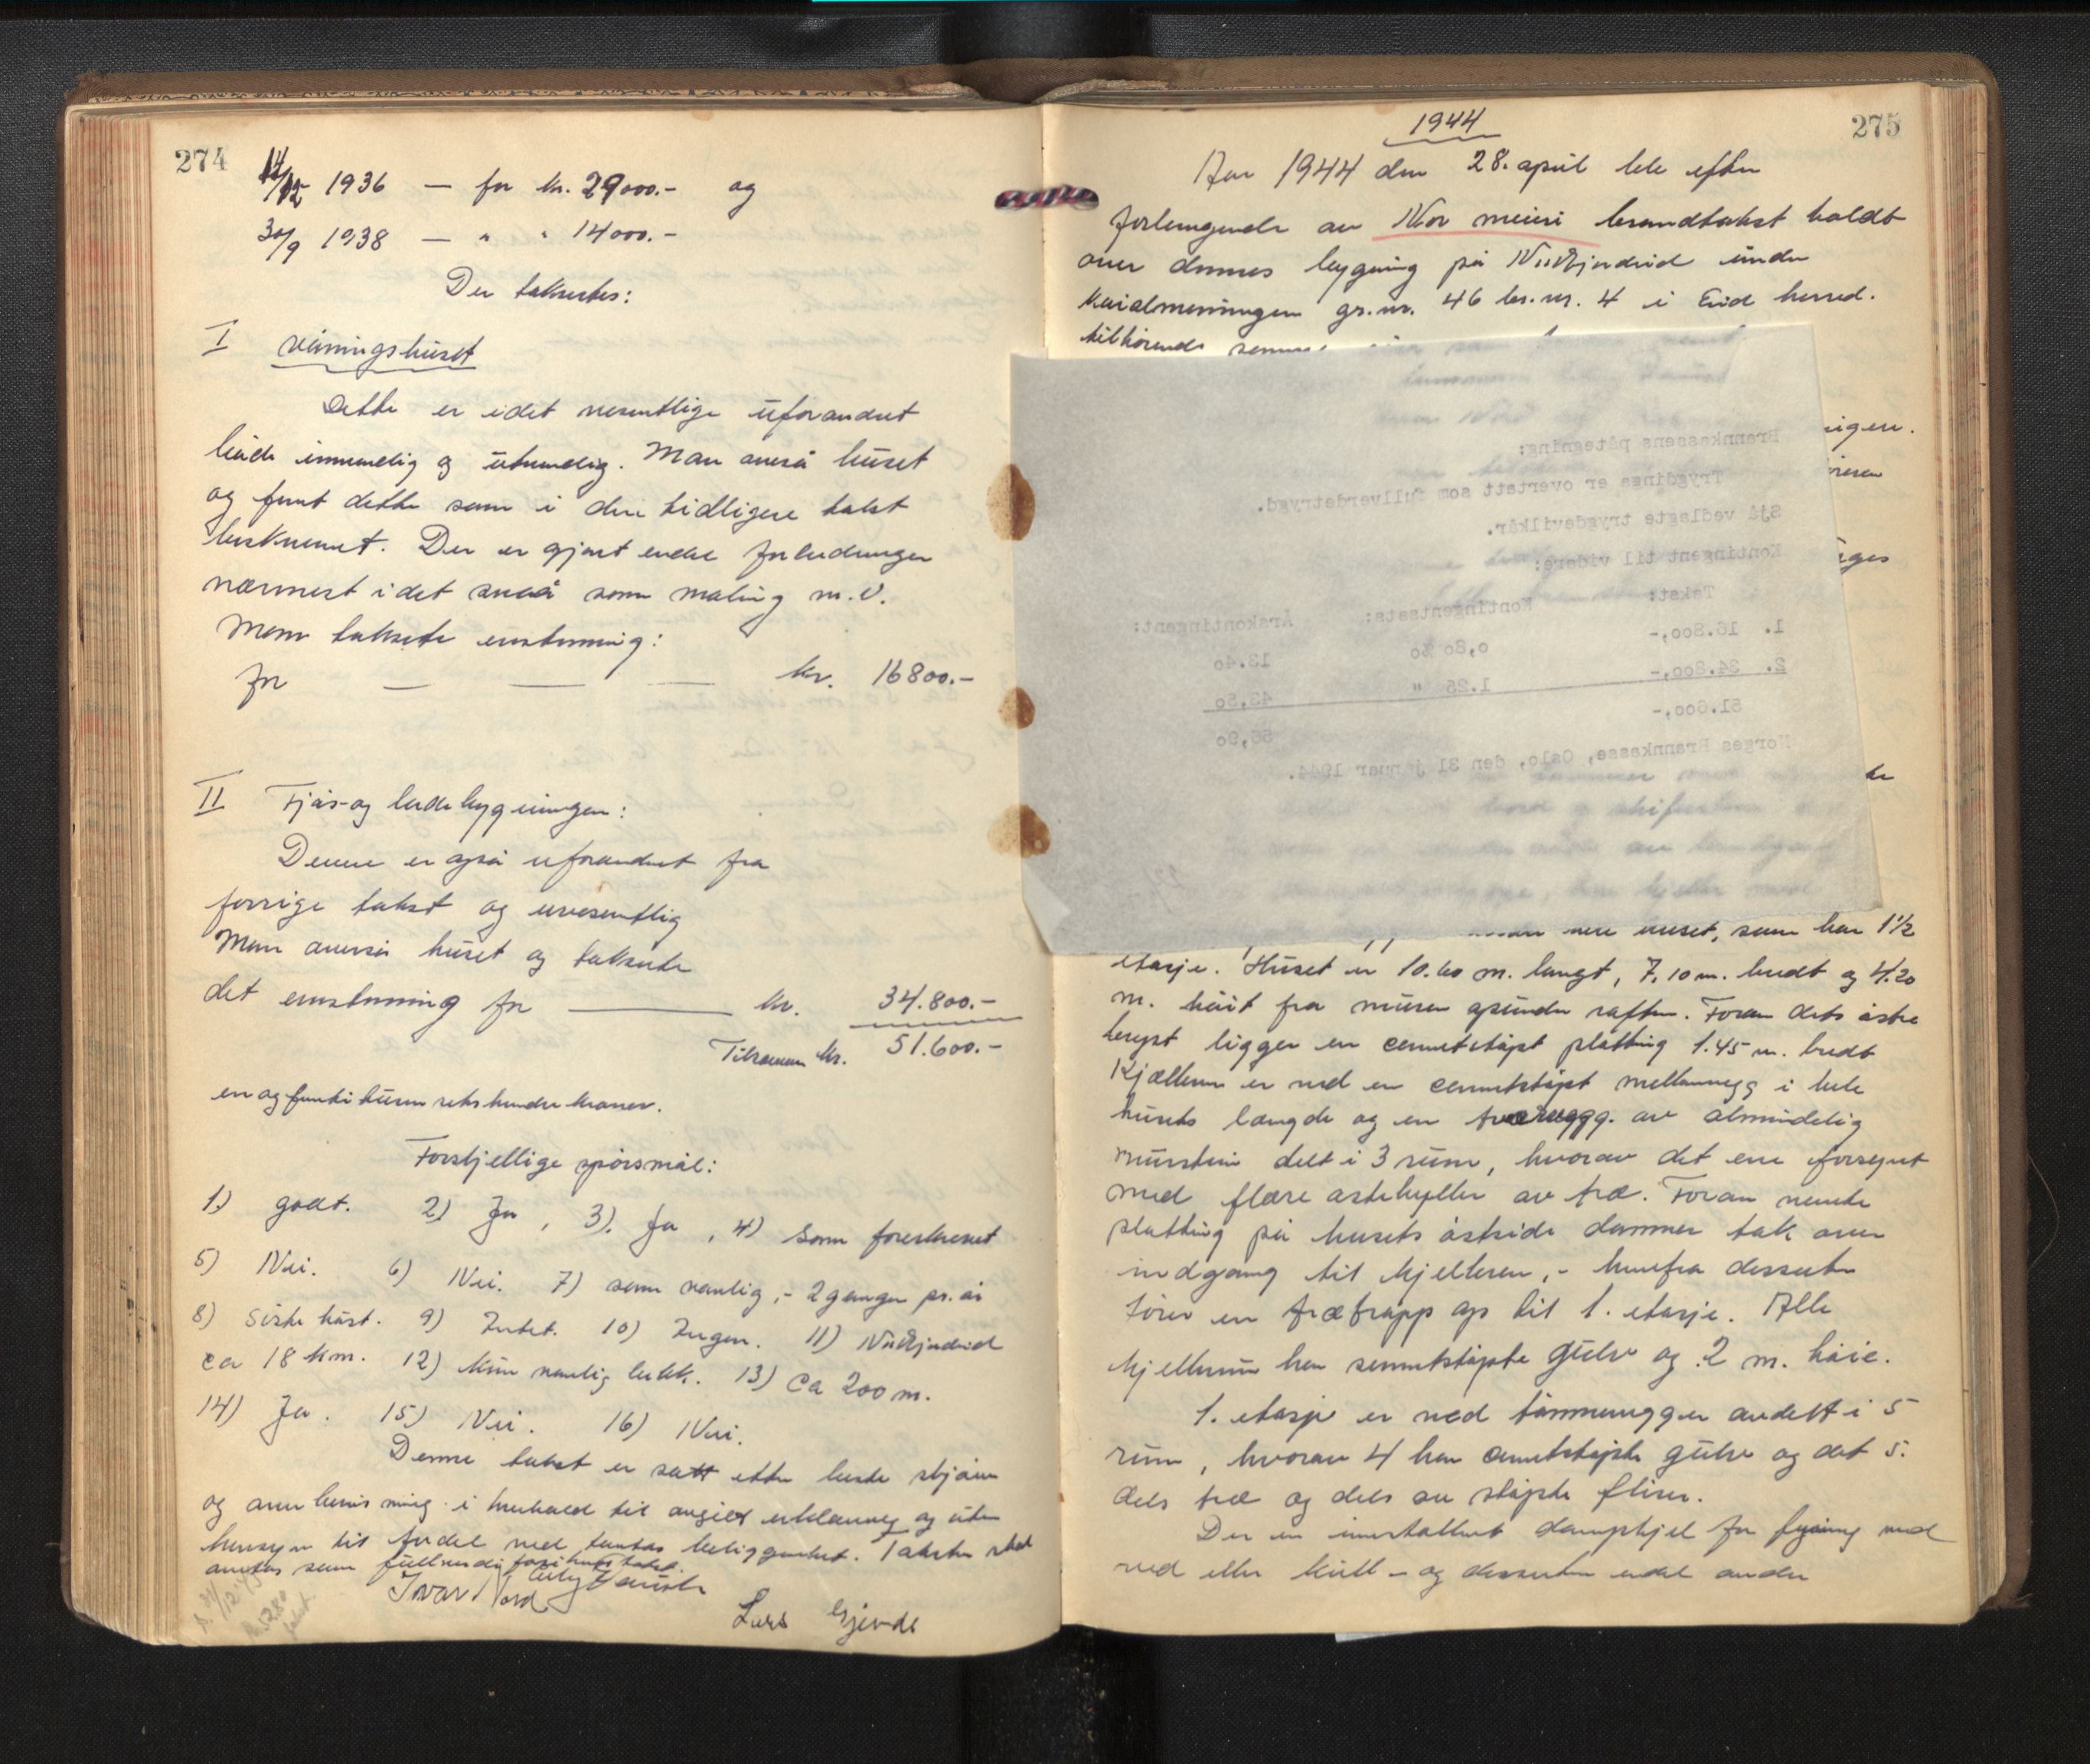 274
14/12 1936 — for kr. 29000.- og
30/9 1938 — " " 14000.-
Der taksertes:
I våningshuset
Dette er i det vesentlige uforandret
både innvendig og utvendig. Man anså huset
og fant dette som i den tidligere takst
beskrevet. Der er gjort endel forbedringer
nærmest i det små som maling m.v.
Man takserte enstemmig:
for — — — kr. 16800.-
II Fjøs- og ladebygningen:
Denne er også uforandret fra
forrige takst og uvesentlig
Man anså huset og takserte
det enstemmig for — kr. 34.800.-
Tilsammen kr. 51.600.-
en og femti tusen seks hundre kroner.
Forskjellige spørsmål:
1) godt. 2) Ja, 3) Ja, 4) Som foreskrevet
5) Nei. 6) Nei. 7) som vanlig,- 2 ganger pr. år
8) Siste høst. 9) Intet. 10) Ingen. 11) Nordfjordeid
ca 18 km. 12) Kun vanlig bekk. 13) Ca 200 m.
14) Ja. 15) Nei. 16) Nei.
Denne takst er satt efter beste skjønn
og overbevisning i henhold til avgitt erklæring og uten
hensyn til fordel ved tomtas beliggenhet. Taksten skal
ansees som fullverdig
Ivar Nord
Lars Gjerde
275
1944
Aar 1944 den 28. april ble efter
forlangende av Nor meieri brandtakst holdt
over dennes bygning på Nordfjordeid under
gr.nr. 46 br.nr. 4 i Eid herred.
tilhørende samme
Brannkassens påtegning:
Trygdinga er overtatt som fullverdetrygd.
Sjå vedlagte trygdevilkår.
Kontingent till vidare:
Takst: Kontingentsats: Årskontingent:
1. 16.800,- 0,80 ‰ 13.40
2. 34.800,- 1.25 " 43,50
51.600,- 56,90
Norges Brannkasse, Oslo, den 31 januar 1944.
huset, som har 1½
etasje. Huset er 10.60 m. langt, 7.10 m. bredt og 4.20
m. høit fra murens grunder raften. Foran dets østre
ligger en cementstøpt platting 1.45 m. bredt
Kjelleren er ved en cementstøpt mellemvegg i hele
husets længde og en tværvegg av almindelig
murstein delt i 3 rum, hvorav det ene forsynt
med flere ostehyller av træ. Foran nevnte
platting på husets østside danner tak over
indgang til kjelleren,- hvorfra dessuten
fører en trætrapp op til 1. etasje. Alle
kjellerrum har sementstøpte gulv og 2 m. høie.
1. etasje er ved tømmervegger avdelt i 5
rum, hvorav 4 har cementstøpte gulv og det 5.
dels træ og dels av støpte fliser.
Der er innstallert dampkjel for fyring med
ved eller kull - og dessuten endel andre